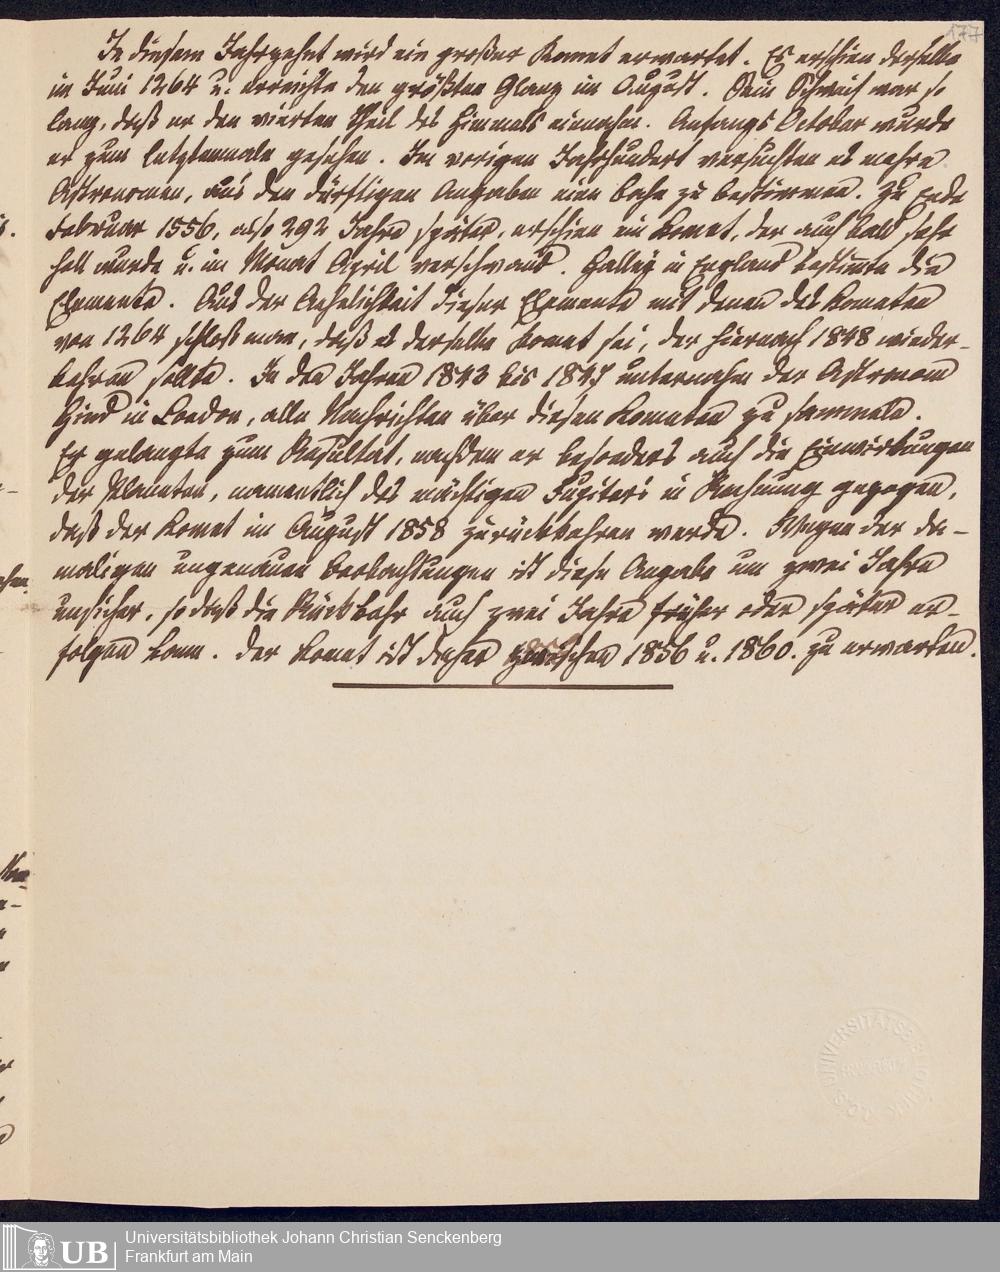 177
In diesem Jahrzehnt wird ein großer Komet erwartet. Es erschien derselbe
im Juni 1264 u. erreichte den größten Glanz im August. Sein Schweif war so
lang, daß er den vierten Theil des Himmels einnahm. Anfangs October wurde
er zum letztenmale gesehen. Im vorigen Jahrhundert versuchten es mehre
Astronomen, aus den dürftigen Angaben eine Bahn zu bestimmen. Zu Ende
Februar 1556, also 292 Jahre später, erschien ein Komet, der auch bald sehr
hell wurde u. im Monat April verschwand. Halley in England bestimte die
Elemente. Aus der Aehnlichkeit dieser Elemente mit denen des Kometen
von 1264 schloß man, daß es derselbe Komet sei, der hiernach 1848 wieder-
kehren sollte. In den Jahren 1843 bis 1847 unternahm der Astronom
Hind in London, alle Nachrichten über diesen Kometen zu sammeln.
Er gelangte zum Resultat, nachdem er besonders auch die Einwirkungen
der Planeten, namentlich des mächtigen Jupiters in Rechnung gezogen,
daß der Komet im August 1858 zurückkehren werde. Wegen der da-
maligen ungenauen Beobachtungen ist diese Angabe um zwei Jahre
unsicher, so daß die Rückkehr auch zwei Jahre früher oder später er-
folgen kann. Der Komet ist daher zwischen 1856 u. 1860. zu erwarten.
UNIVERSITÄTSBIBLIOTHEK
UB
Universitätsbibliothek Johann Christian Senckenberg
Frankfurt am Main